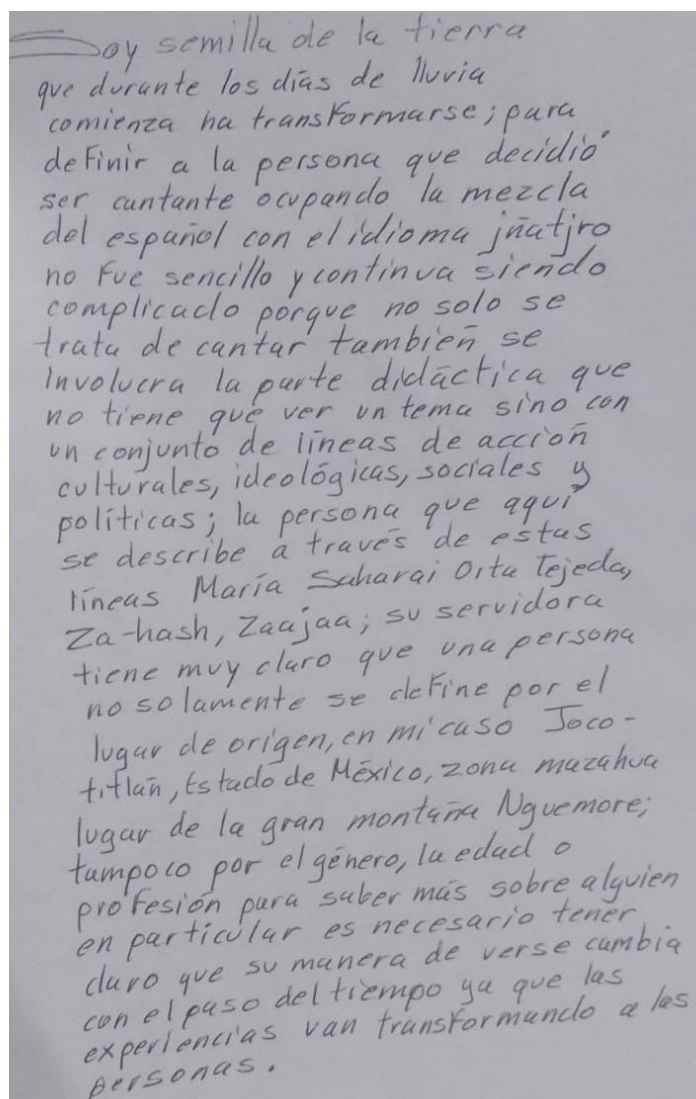 Soy semilla de la tierra
que durante los días de lluvia
comienza ha transformarse; para
definir a la persona que decidió
ser cantante ocupando la mezcla
del español con el idioma jñatjro
no fue sencillo y continua siendo
complicado porque no solo se
trata de cantar también se
involucra la parte didáctica que
no tiene que ver un tema sino con
un conjunto de líneas de acción
culturales, ideológicas, sociales y
políticas; la persona que aquí
se describe a través de estas
líneas María Saharai Orta Tejeda,
Za-hash, Zaajaa; su servidora
tiene muy claro que una persona
no solamente se define por el
lugar de origen, en mi caso Joco-
titlán, Estado de México, zona mazahua
lugar de la gran montaña Nguemore;
tampoco por el género, la edad o
profesión para saber más sobre alguien
en particular es necesario tener
claro que su manera de verse cambia
con el paso del tiempo ya que las
experiencias van transformando a las
personas.